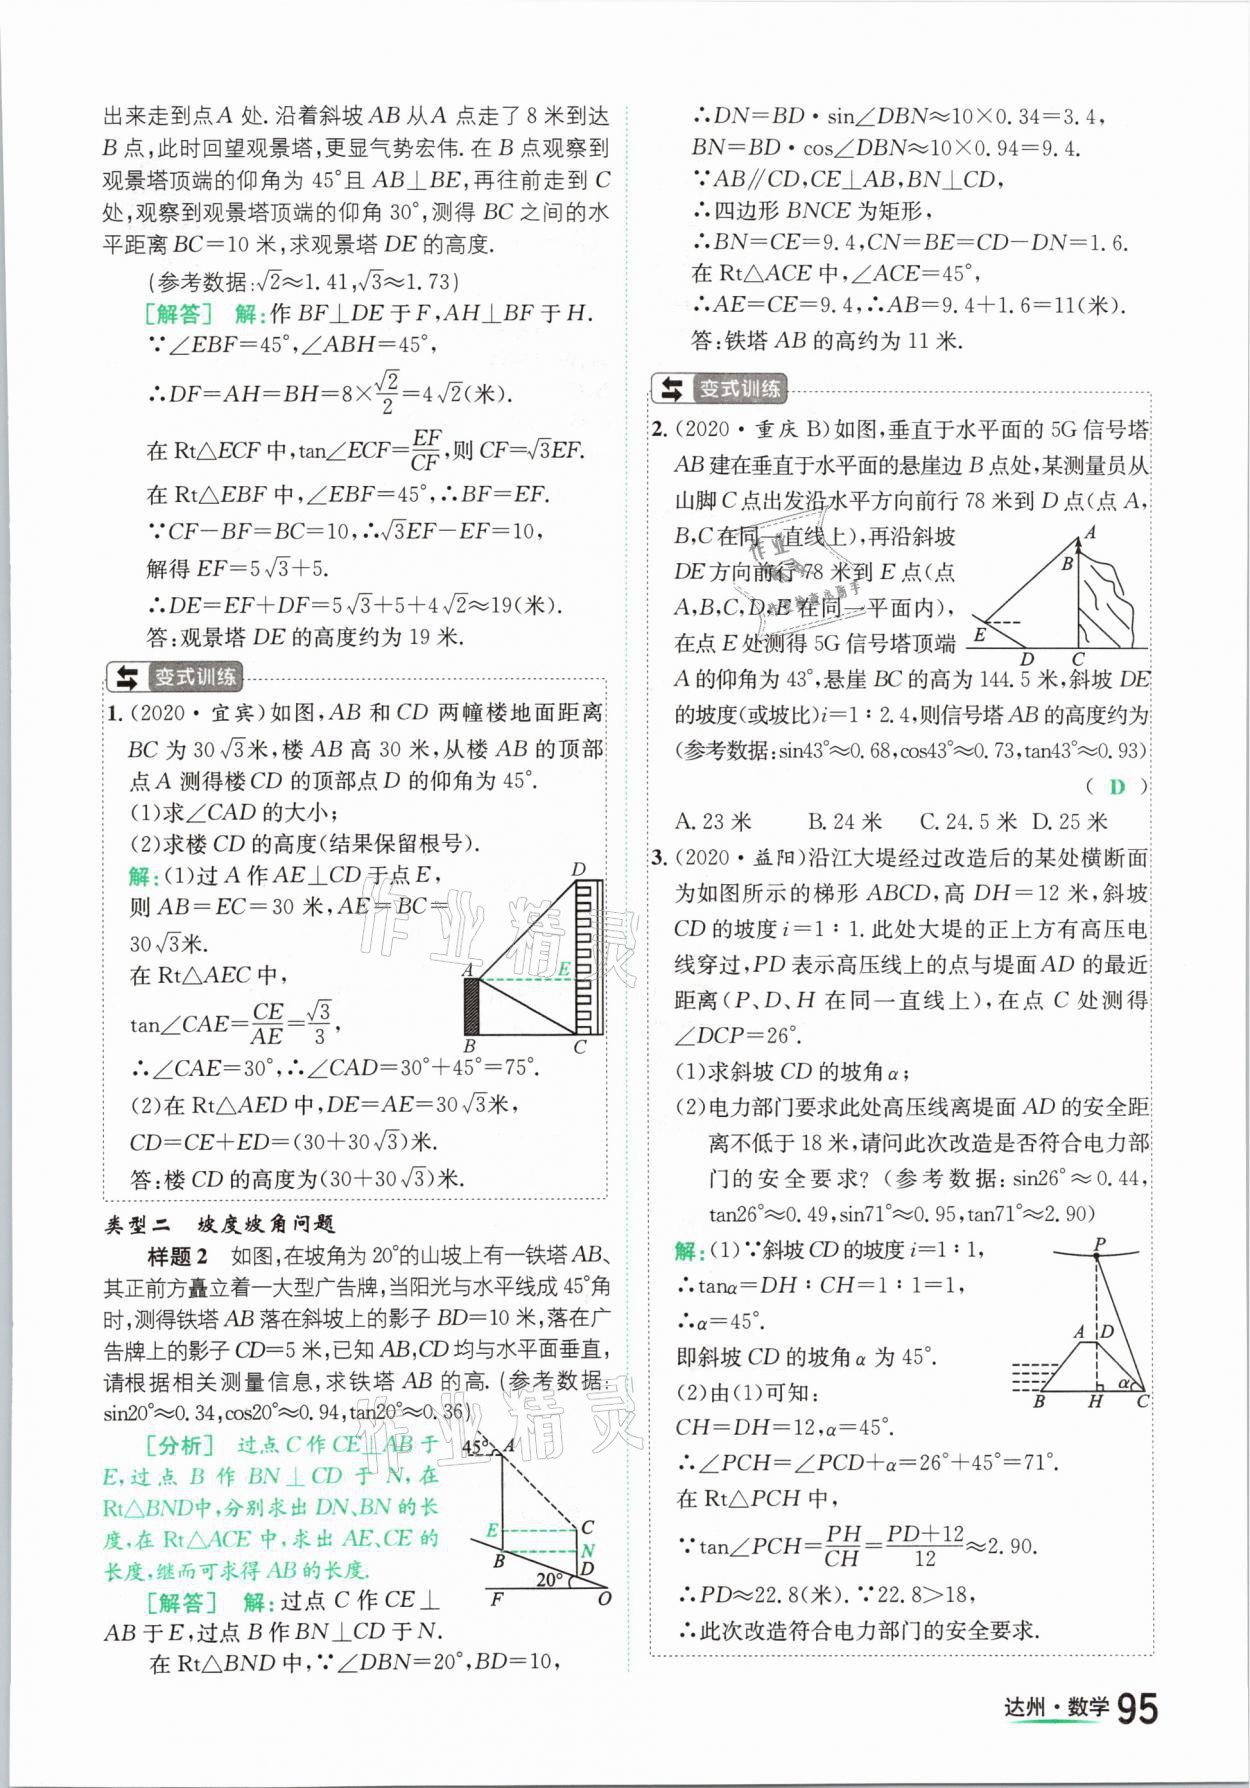 出来走到点A 处. 沿着斜坡 AB 从 A 点走了 8 米到达
B 点,此时回望观景塔,更显气势宏伟. 在 B 点观察到
观景塔顶端的仰角为 45°且 AB⊥BE,再往前走到 C
处,观察到观景塔顶端的仰角 30°,测得 BC 之间的水
平距离 BC=10 米,求观景塔 DE 的高度.
(参考数据:√2≈1.41,√3≈1.73)
[解答] 解:作 BF⊥DE 于 F,AH⊥BF 于 H.
∵∠EBF=45°,∠ABH=45°,
∴DF=AH=BH=8×√2/2=4√2(米).
在 Rt△ECF 中,tan∠ECF=EF/CF,则 CF=√3EF.
在 Rt△EBF 中,∠EBF=45°,∴BF=EF.
∵CF-BF=BC=10,∴√3EF-EF=10,
解得 EF=5√3+5.
∴DE=EF+DF=5√3+5+4√2≈19(米).
答:观景塔 DE 的高度约为 19 米.
变式训练
1. (2020·宜宾)如图,AB 和 CD 两幢楼地面距离
BC 为 30√3米,楼 AB 高 30 米,从楼 AB 的顶部
点 A 测得楼 CD 的顶部点 D 的仰角为 45°.
(1)求∠CAD 的大小;
(2)求楼 CD 的高度(结果保留根号).
解:(1)过 A 作 AE⊥CD 于点 E,
则 AB=EC=30 米,AE=BC=
30√3米.
在 Rt△AEC 中,
tan∠CAE=CE/AE=√3/3,
∴∠CAE=30°,∴∠CAD=30°+45°=75°.
(2)在 Rt△AED 中,DE=AE=30√3米,
CD=CE+ED=(30+30√3)米.
答:楼 CD 的高度为(30+30√3)米.
D
A
E
B
C
类型二 坡度坡角问题
样题2 如图,在坡角为 20°的山坡上有一铁塔 AB、
其正前方矗立着一大型广告牌,当阳光与水平线成 45°角
时,测得铁塔 AB 落在斜坡上的影子 BD=10 米,落在广
告牌上的影子 CD=5 米,已知 AB,CD 均与水平面垂直,
请根据相关测量信息,求铁塔 AB 的高. (参考数据:
sin20°≈0.34,cos20°≈0.94,tan20°≈0.36)
[分析] 过点 C 作 CE⊥AB 于
E,过点 B 作 BN⊥CD 于 N,在
Rt△BND中,分别求出 DN、BN 的长
度,在 Rt△ACE 中,求出 AE、CE 的
长度,继而可求得 AB 的长度.
[解答] 解:过点 C 作 CE⊥
AB 于 E,过点 B 作 BN⊥CD 于 N.
在 Rt△BND 中,∵∠DBN=20°,BD=10,
45°
A
E
C
B
N
D
20°
F
O
∴DN=BD·sin∠DBN≈10×0.34=3.4,
BN=BD·cos∠DBN≈10×0.94=9.4.
∵AB∥CD,CE⊥AB,BN⊥CD,
∴四边形 BNCE 为矩形,
∴BN=CE=9.4,CN=BE=CD-DN=1.6.
在 Rt△ACE 中,∠ACE=45°,
∴AE=CE=9.4,∴AB=9.4+1.6=11(米).
答:铁塔 AB 的高约为 11 米.
变式训练
2. (2020·重庆 B)如图,垂直于水平面的 5G 信号塔
AB 建在垂直于水平面的悬崖边 B 点处,某测量员从
山脚 C 点出发沿水平方向前行 78 米到 D 点(点 A,
B,C 在同一直线上),再沿斜坡
DE 方向前行 78 米到 E 点(点
A,B,C,D,E 在同一平面内),
在点 E 处测得 5G 信号塔顶端
A 的仰角为 43°,悬崖 BC 的高为 144.5 米,斜坡 DE
的坡度(或坡比)i=1∶2.4,则信号塔 AB 的高度约为
(参考数据:sin43°≈0.68,cos43°≈0.73,tan43°≈0.93)
( D )
A. 23 米 B. 24 米 C. 24.5 米 D. 25 米
A
B
E
D
C
3. (2020·益阳)沿江大堤经过改造后的某处横断面
为如图所示的梯形 ABCD,高 DH=12 米,斜坡
CD 的坡度 i=1∶1. 此处大堤的正上方有高压电
线穿过,PD 表示高压线上的点与堤面 AD 的最近
距离(P、D、H 在同一直线上),在点 C 处测得
∠DCP=26°.
(1)求斜坡 CD 的坡角 α;
(2)电力部门要求此处高压线离堤面 AD 的安全距
离不低于 18 米,请问此次改造是否符合电力部
门的安全要求? (参考数据:sin26°≈0.44,
tan26°≈0.49,sin71°≈0.95,tan71°≈2.90)
解:(1)∵斜坡 CD 的坡度 i=1∶1,
∴tanα=DH∶CH=1∶1=1,
∴α=45°.
即斜坡 CD 的坡角 α 为 45°.
(2)由(1)可知:
CH=DH=12,α=45°.
∴∠PCH=∠PCD+α=26°+45°=71°.
在 Rt△PCH 中,
∵tan∠PCH=PH/CH=PD+12/12≈2.90.
∴PD≈22.8(米). ∵22.8>18,
∴此次改造符合电力部门的安全要求.
P
A
D
α
B
H
C
达州·数学 95
作业精灵
作业精灵